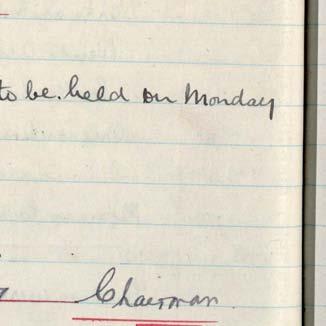 to be held on Monday
Chairman.